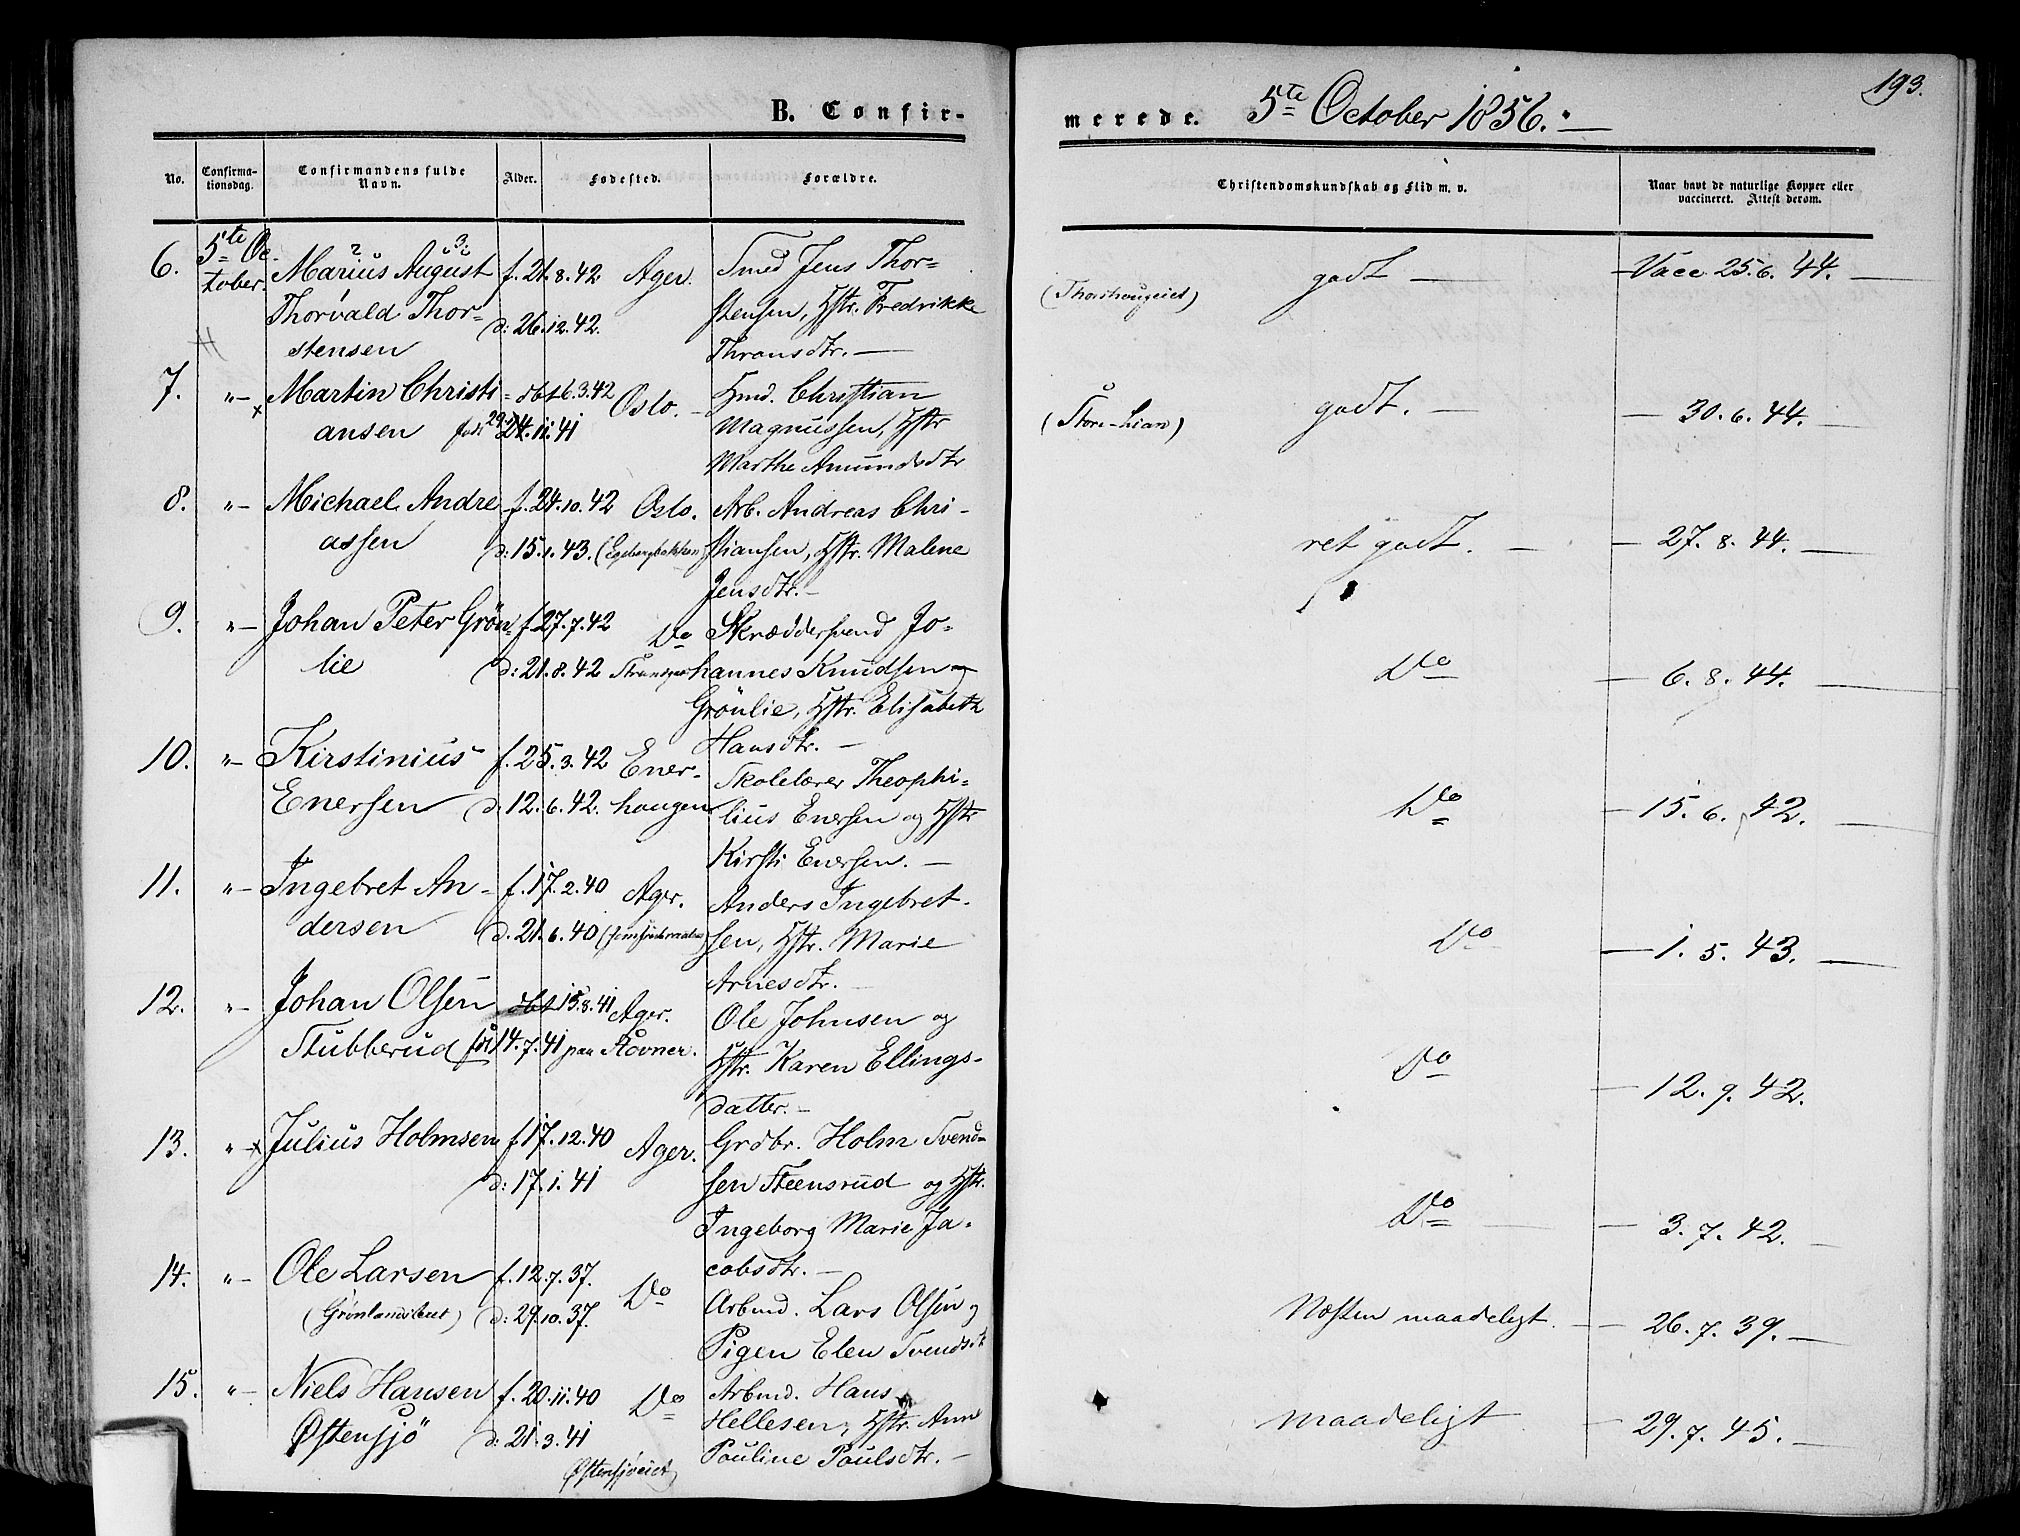 193.
B. Confir-
merede. 5te October 1856.
No.
Confirma-
tionsdag.
Confirmandens fulde
Navn.
Alder.
Fødested.
Forældre.
Christendomskundskab og Flid m. v.
Naar havt de naturlige Kopper eller
vaccineret. Attest derom.
6. 5te Oc-
tober.
2 3.
Marius August
Thorvald Thor-
stensen
f. 21.8.42
d: 26.12.42.
Ager.
Smed Jens Thor-
stensen, Hstr. Fredrikke
Thronsdtr.
(Thorshougeiet)
godt
Vacc. 25.6.44.
7. "
Martin Christi-
ansen
dbt 6.3.42
24.11.41
Oslo.
Hmd. Christian
Magnussen, Hstr
Marthe Amundsdtr
(Store-Lian)
godt.
30.6.44.
8. "
Michael Andre
assen
f. 24.10.42
d: 15.1.43.
Oslo.
(Egebergbakken)
Arb. Andreas Chri-
stiansen, Hstr. Malene
Jensdtr.
ret godt.
27.8.44.
9. "
Johan Peter Grön-
lie
f. 27.7.42
d: 21.8.42
Do
Skræddersvend Jo-
hannes Knudsen
Grönlie, Hstr. Elisabeth
Hansdtr.
Do
6.8.44.
10. "
Kirstinius
Enersen
f. 25.3.42
d: 12.6.42.
Ener-
haugen
Skolelærer Theophi-
lius Enersen og Hstr
Kirsti Enersen.
Do
15.6.42.
11. "
Ingebret An-
dersen
f. 17.2.40
d. 21.6.40
Ager.
Anders Ingebret-
sen, Hstr. Marie
Arnesdtr.
Do
1.5.43.
12. "
Johan Olsen
Stubberud
dbt 15.8.41
14.7.41
Ager.
paa Rovner.
Ole Johnsen og
Hstr. Karen Ellings-
datter.
Do
12.9.42.
13. "
Julius Holmsen
f. 17.12.40
d: 17.1.41
Ager.
Grdbr. Holm Svend-
sen Steensrud og Hstr.
Ingeborg Marie Ja-
cobsdtr.
Do
3.7.42.
14. "
Ole Larsen
(Grönlandsleret)
f. 12.7.37.
d: 29.10.37.
Do
Arbmd. Lars Olsen og
Pigen Elen Svendsdt
Næsten maadeligt.
26.7.39.
15. "
Niels Hansen
Østensjö
f. 20.11.40
d: 21.3.41
Do
Østensjöeiet
Arbmd. Hans
Hellesen, Hstr. Anne
Pauline Paulsdtr.
maadeligt
29.7.45.